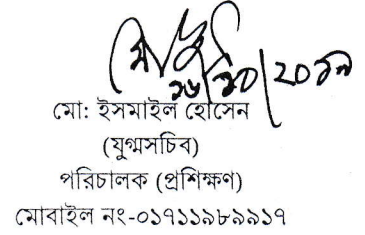 ১৬/১০/২০১৯
মো: ইসমাইল হোসেন
(যুগ্মসচিব)
পরিচালক (প্রশিক্ষণ)
মোবাইল নং-০১৭১১৯৮৯৯১৭